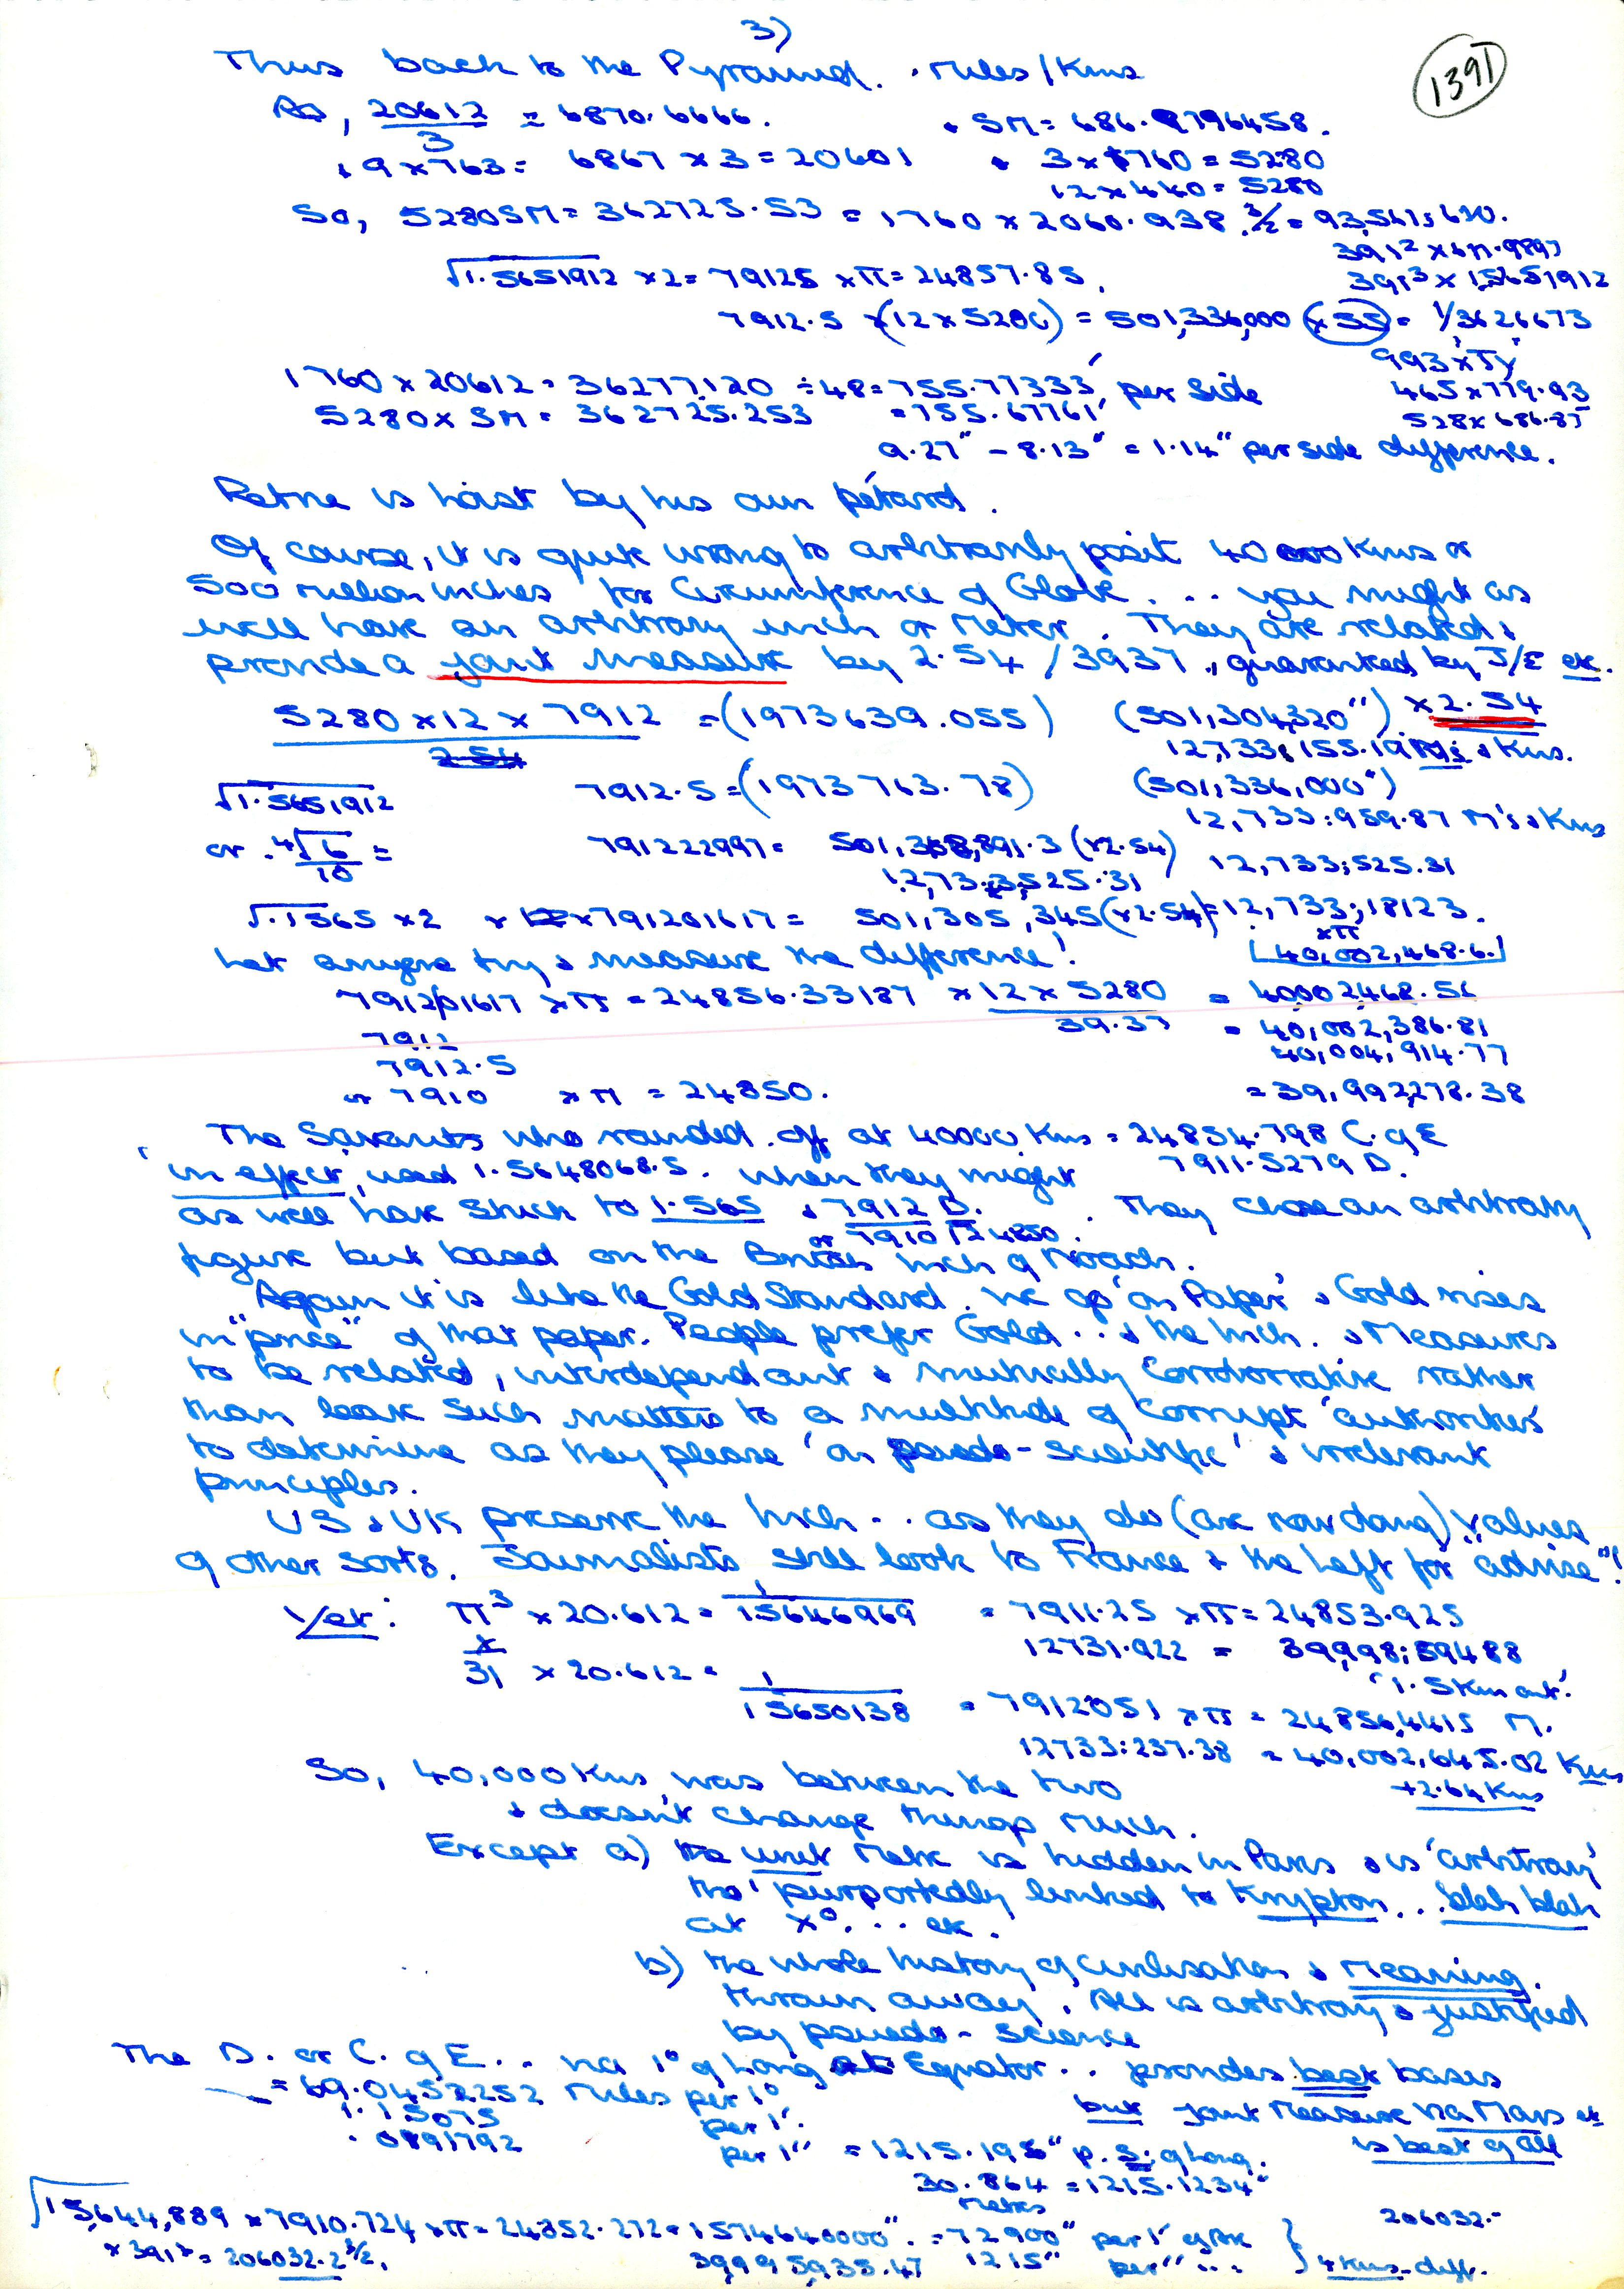 3)
1391
Thus back to the Pyramid. . Miles/Kms
As, 20612/3 = 6870.6666. + SM = 686.9796458.
+ 9 x 763 = 6867 x 3 = 20601 + 3 x 1760 = 5280
12 x 440 = 5280
So, 5280SM = 362725.53 = 1760 x 2060.938
391² x
391³ x 1.5651912
√1.5651912 x 2 = 79125 x π = 24857.85.
7912.5 x (12 x 5280) = 501,336,000 (x 55) = 1/3626673
993 x Ty
1760 x 20612 = 36277120 ÷ 48 = 755.77333' per side
465 x 779.93
5280 x SM = 362725.253 = 755.67761'
528 x 686.97
9.27" - 8.13" = 1.14" per side difference.
Petrie is hoist by his own pétard.
Of course, it is quite wrong to arbitrarily posit 40000 Kms or
500 million inches for Circumference of Globe . . . you might as
well have an arbitrary inch or Meter. They are related &
provide a joint measure by 2.54 / 3937, guaranteed by J/E etc.
5280 x 12 x 7912 = (1973639.055) (501,304,320") x 2.54
2.54
12,733,155.19 & Kms.
√1.5651912 7912.5 = (1973763.78) (501,336,000")
12,733:959.87 M's & Kms
or 4√6/10 = 791222997 = 501,318,891.3 (x2.54) 12,733,525.31
12,733,525.31
√.1565 x 2 x 791201617 = 501,305,345 (x2.54) = 12,733,18123.
xπ
40,002,468.6.
Let anyone try & measure the difference!
791201617 x π = 24856.33187 x 12 x 5280 / 39.37 = 40002468.56
7912 = 40,002,386.81
7912.5 40,004,914.77
or 7910 x π = 24850. = 39,992,278.38
The Savants who rounded off at 40000 Kms = 24854.798 C. of E
7911.5279 D.
in effect, used 1.5648068.5. when they might
as well have stuck to 1.565 & 7912 D. They chose an arbitrary
or 7910 / 24850.
figure but based on the British Inch of Noach.
Again it is like the Gold Standard. We go 'on Paper' & Gold rises
in "price" of that paper. People prefer Gold . . & the Inch. & Measures
to be related, interdependant & mutually Corroborrative rather
than leave such matters to a multitude of Corrupt 'authorities'
to determine as they please 'on pseudo-scientific' & irrelevant
principles.
US & UK preserve the Inch . . as they do (are now doing) values
of other sorts. Journalists still look to France & the Left for "advise"!
Yet: π³ x 20.612 = 1/15646969 = 7911.25 x π = 24853.925
12731.922 = 39,998:59488
'1.5 Km out'.
31 x 20.612 = 1/15650138 = 7912051 x π = 24856,4415 M.
12733:237.38 = 40,002,645.02 Kms
+2.64 Kms
So, 40,000 Kms was between the two
& doesn't change things much.
Except a) the unit Metre is hidden in Paris & is 'arbitrary'
tho' purportedly linked to Krypton . . . blah blah
at X° . . . etc.
b) the whole history of civilisation & Meaning.
thrown away. All is arbitrary & justified
by pseudo-science
The D. or C. of E. . via 1° of Long at Equator . . provides best bases
= 69.0452252 miles per 1°
but joint Measure via Mars etc
1.15075 per 1'.
is best of all
.0191792 per 1" = 1215.195" p. S. of Long.
30.864 = 1215.1234"
Metres
√15,644,889 x 7910.724 x π = 24852.272 = 1574640000". = 72900" per 1' of Arc
206032.-
x 391² = 206032.2 39995935.47 1215" per " . . .
4 Kms diff.